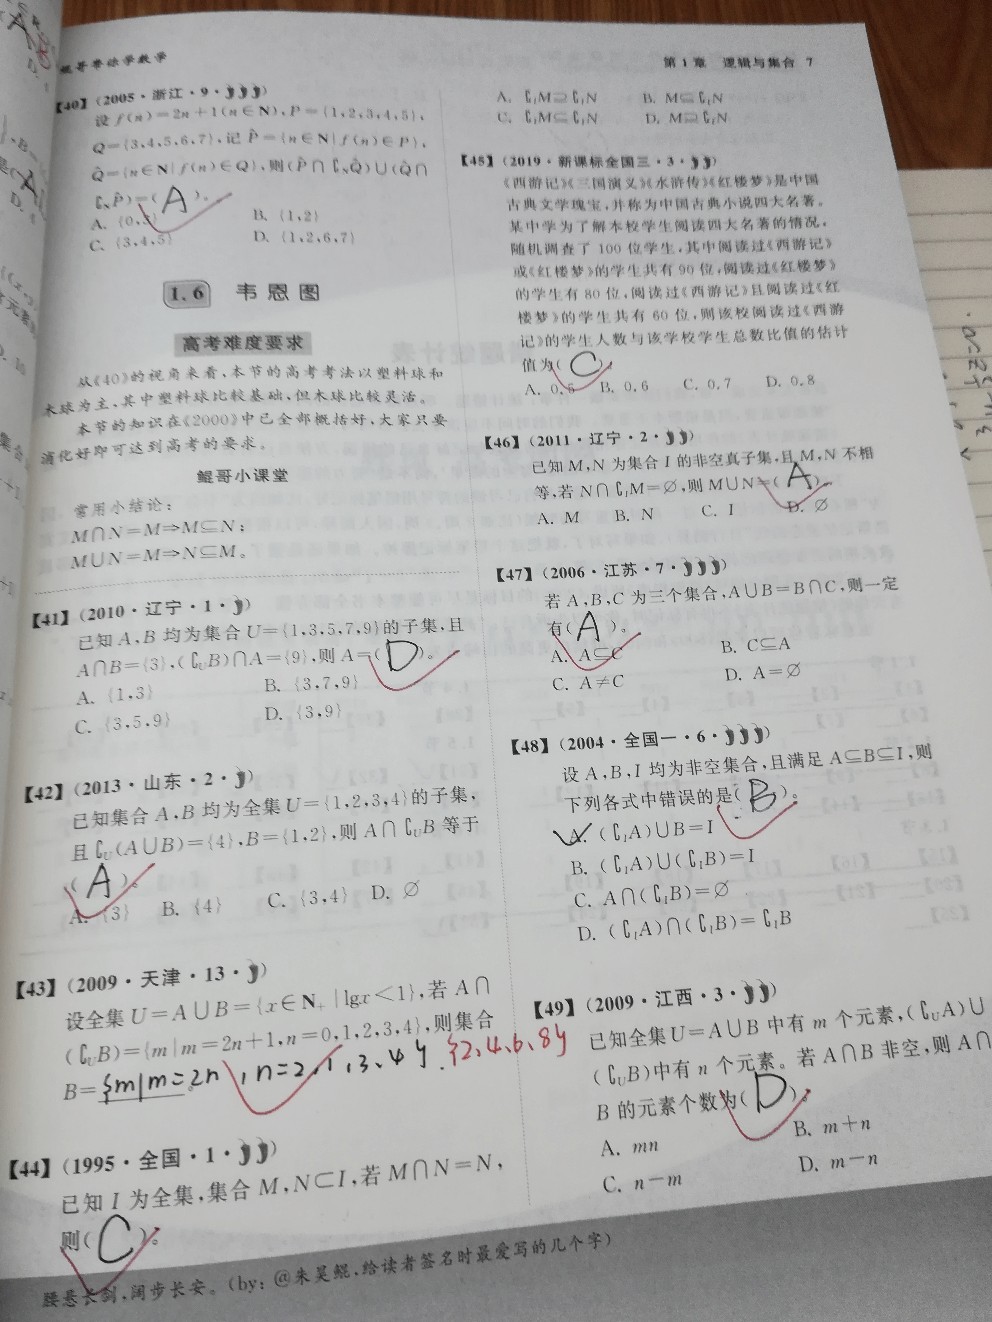 鲲哥带你学数学
第1章 逻辑与集合 7
【40】(2005·浙江·9·)
设f(n)=2n+1(n∈N),P={1,2,3,4,5},
Q={3,4,5,6,7},记P̂={n∈N|f(n)∈P},
Q̂={n∈N|f(n)∈Q},则(P̂∩∁NQ̂)∪(Q̂∩
∁NP̂)=(A)。
A. {0,3} B. {1,2}
C. {3,4,5} D. {1,2,6,7}
1.6 韦恩图
高考难度要求
从《40》的视角来看,本节的高考考法以塑料球和
木球为主,其中塑料球比较基础,但木球比较灵活。
本节的知识在《2000》中已全部概括好,大家只要
消化好即可达到高考的要求。
鲲哥小课堂
常用小结论:
M∩N=M⇒M⊆N;
M∪N=M⇒N⊆M。
【41】(2010·辽宁·1·)
已知A,B均为集合U={1,3,5,7,9}的子集,且
A∩B={3},(∁UB)∩A={9},则A=(D)。
A. {1,3} B. {3,7,9}
C. {3,5,9} D. {3,9}
【42】(2013·山东·2·)
已知集合A,B均为全集U={1,2,3,4}的子集,
且∁U(A∪B)={4},B={1,2},则A∩∁UB等于
(A)。
A. {3} B. {4} C. {3,4} D. ∅
【43】(2009·天津·13·)
设全集U=A∪B={x∈N+|lgx<1},若A∩
(∁UB)={m|m=2n+1,n=0,1,2,3,4},则集合
B={m|m=2n,n=2,1,3,4}. {2,4,6,8}
【44】(1995·全国·1·)
已知I为全集,集合M,N⊂I,若M∩N=N,
则(C)。
A. ∁IM⊇∁IN B. M⊆∁IN
C. ∁IM⊆∁IN D. M⊇∁IN
【45】(2019·新课标全国三·3·)
《西游记》《三国演义》《水浒传》《红楼梦》是中国
古典文学瑰宝,并称为中国古典小说四大名著。
某中学为了解本校学生阅读四大名著的情况,
随机调查了100位学生,其中阅读过《西游记》
或《红楼梦》的学生共有90位,阅读过《红楼梦》
的学生有80位,阅读过《西游记》且阅读过《红
楼梦》的学生共有60位,则该校阅读过《西游
记》的学生人数与该学校学生总数比值的估计
值为(C)。
A. 0.5 B. 0.6 C. 0.7 D. 0.8
【46】(2011·辽宁·2·)
已知M,N为集合I的非空真子集,且M,N不相
等,若N∩∁IM=∅,则M∪N=(A)。
A. M B. N C. I D. ∅
【47】(2006·江苏·7·)
若A,B,C为三个集合,A∪B=B∩C,则一定
有(A)。
A. A⊆C B. C⊆A
C. A≠C D. A=∅
【48】(2004·全国一·6·)
设A,B,I均为非空集合,且满足A⊆B⊆I,则
下列各式中错误的是(B)。
A. (∁IA)∪B=I
B. (∁IA)∪(∁IB)=I
C. A∩(∁IB)=∅
D. (∁IA)∩(∁IB)=∁IB
【49】(2009·江西·3·)
已知全集U=A∪B中有m个元素,(∁UA)∪
(∁UB)中有n个元素。若A∩B非空,则A∩
B的元素个数为(D)。
A. mn B. m+n
C. n-m D. m-n
腰悬长剑,阔步长安。(by: @朱昊鲲,给读者签名时最爱写的几个字)